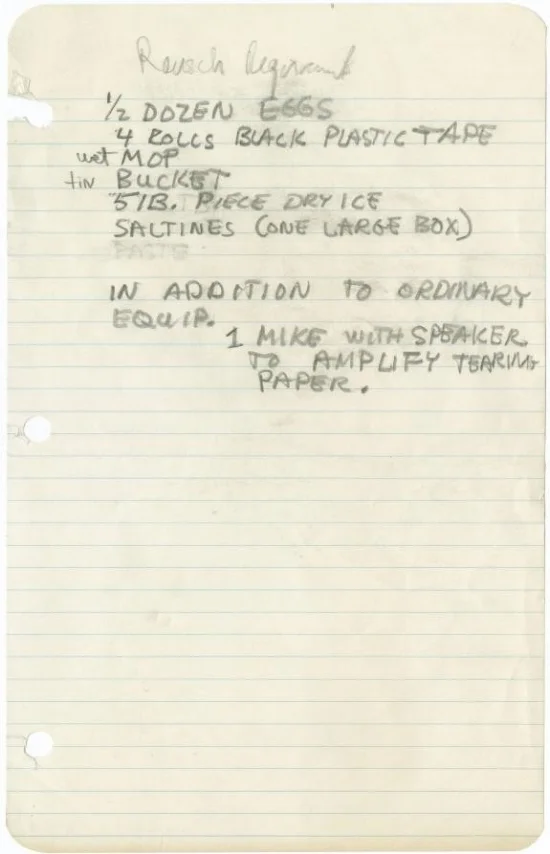 Rausch
1/2 DOZEN EGGS
4 ROLLS BLACK PLASTIC TAPE
wet MOP
tin BUCKET
5 lB. PIECE DRY ICE
SALTINES (ONE LARGE BOX)
PASTE
IN ADDITION TO ORDINARY
EQUIP.
1 MIKE WITH SPEAKER
TO AMPLIFY TEARING
PAPER.